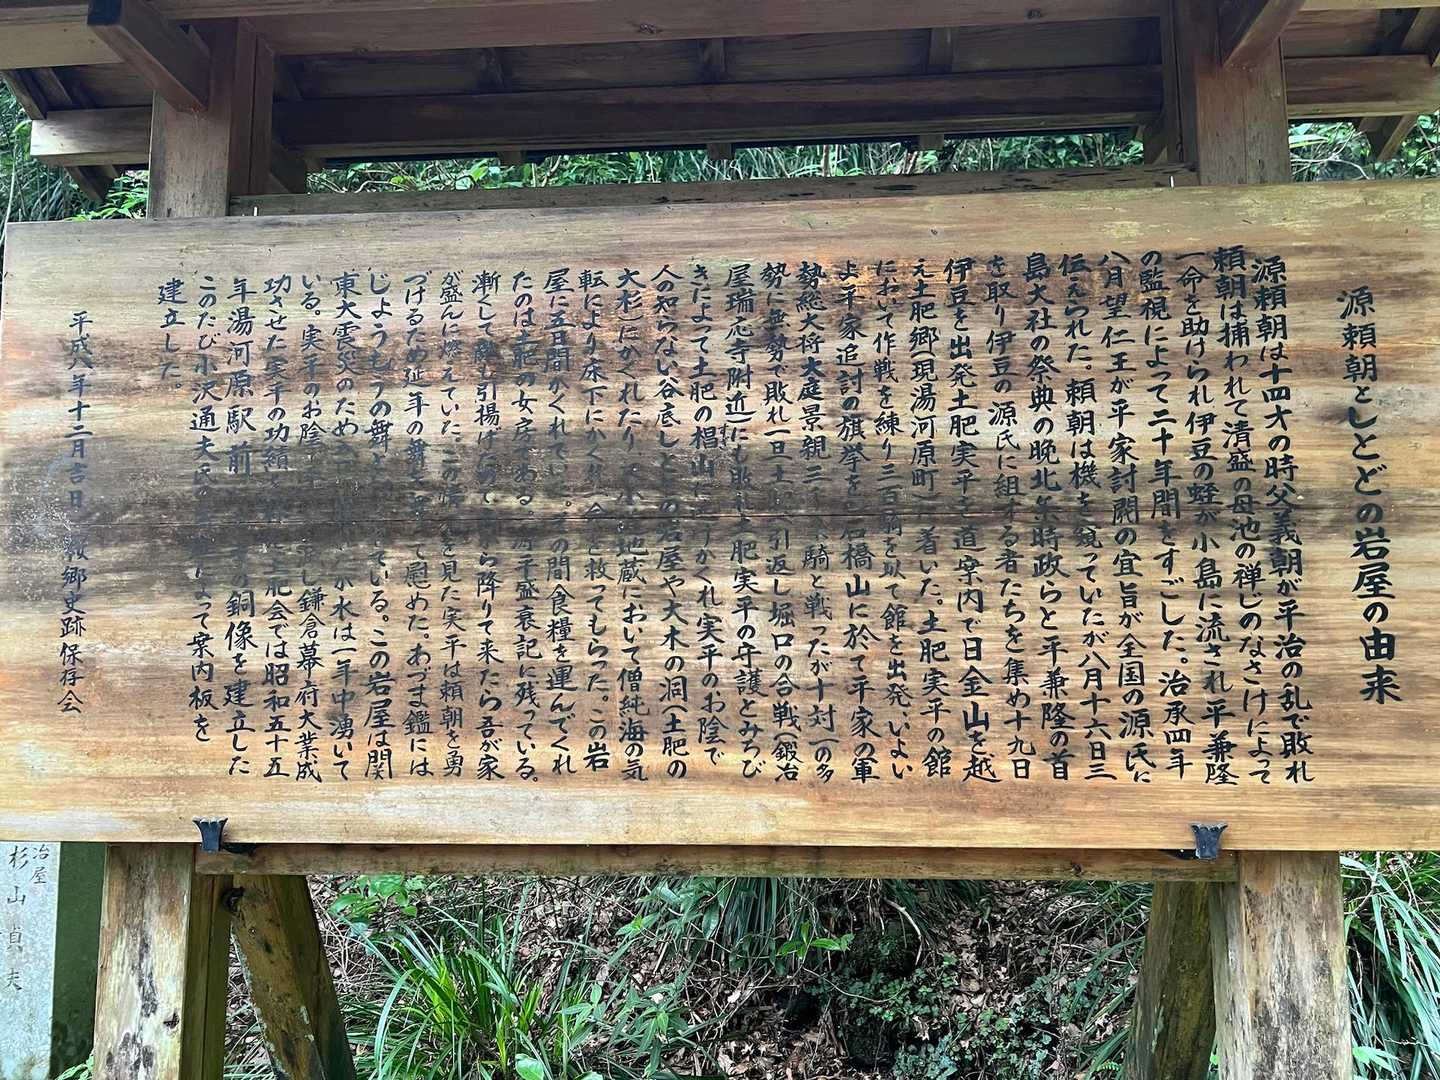 源頼朝としとどの岩屋の由来
源頼朝は十四才の時父義朝が平治の乱で敗れ
頼朝は捕われて清盛の母池の禅しのなさけによって
一命を助けられ伊豆の蛭が小島に流され平兼隆
の監視によって二十年間をすごした。治承四年
八月望仁王が平家討閥の宜旨が全国の源氏に
伝えられた。頼朝は機を窺っていたが八月十六日三
島大社の祭典の晩北条時政らと平兼隆の首
を取り伊豆の源氏に組する者たちを集め十九日
伊豆を出発土肥実平を道案内で日金山を越
え土肥郷(現湯河原町)に着いた。土肥実平の館
において作戦を練り三百騎を以て館を出発、いよい
よ平家追討の旗挙を石橋山に於て平家の軍
勢総大将大庭景親三千余騎と戦ったが十対一の多
勢に無勢で敗れ一旦土肥に引返し堀口の合戦(鍛冶
屋瑞応寺附近)にも敗れ土肥実平の守護とみちび
きによって土肥の椙山にかくれ実平のお陰で
人の知らない谷底しとどの岩屋や大木の洞(土肥の
大杉)にかくれたり小地蔵において僧純海の気
転により床下にかくれ命を救ってもらった。この岩
屋に五日間かくれていその間食糧を運んでくれ
たのは土肥の女房である源平盛衰記に残っている。
漸くして引揚げから降りて来たら吾が家
が盛んに燃えていた。このを見た実平は頼朝を勇
づけるため延年の舞をて慰めた。あづま鑑には
じょうもうの舞とている。この岩屋は関
東大震災のためが水は一年中湧いて
いる。実平のお陰でし鎌倉幕府大業成
功させた実平の功績を土肥会では昭和五十五
年湯河原駅前にの銅像を建立した
このたび小沢通夫氏のによって案内板を
建立した。
平成八年十二月吉日 郷史跡保存会
冶屋
杉山貞夫